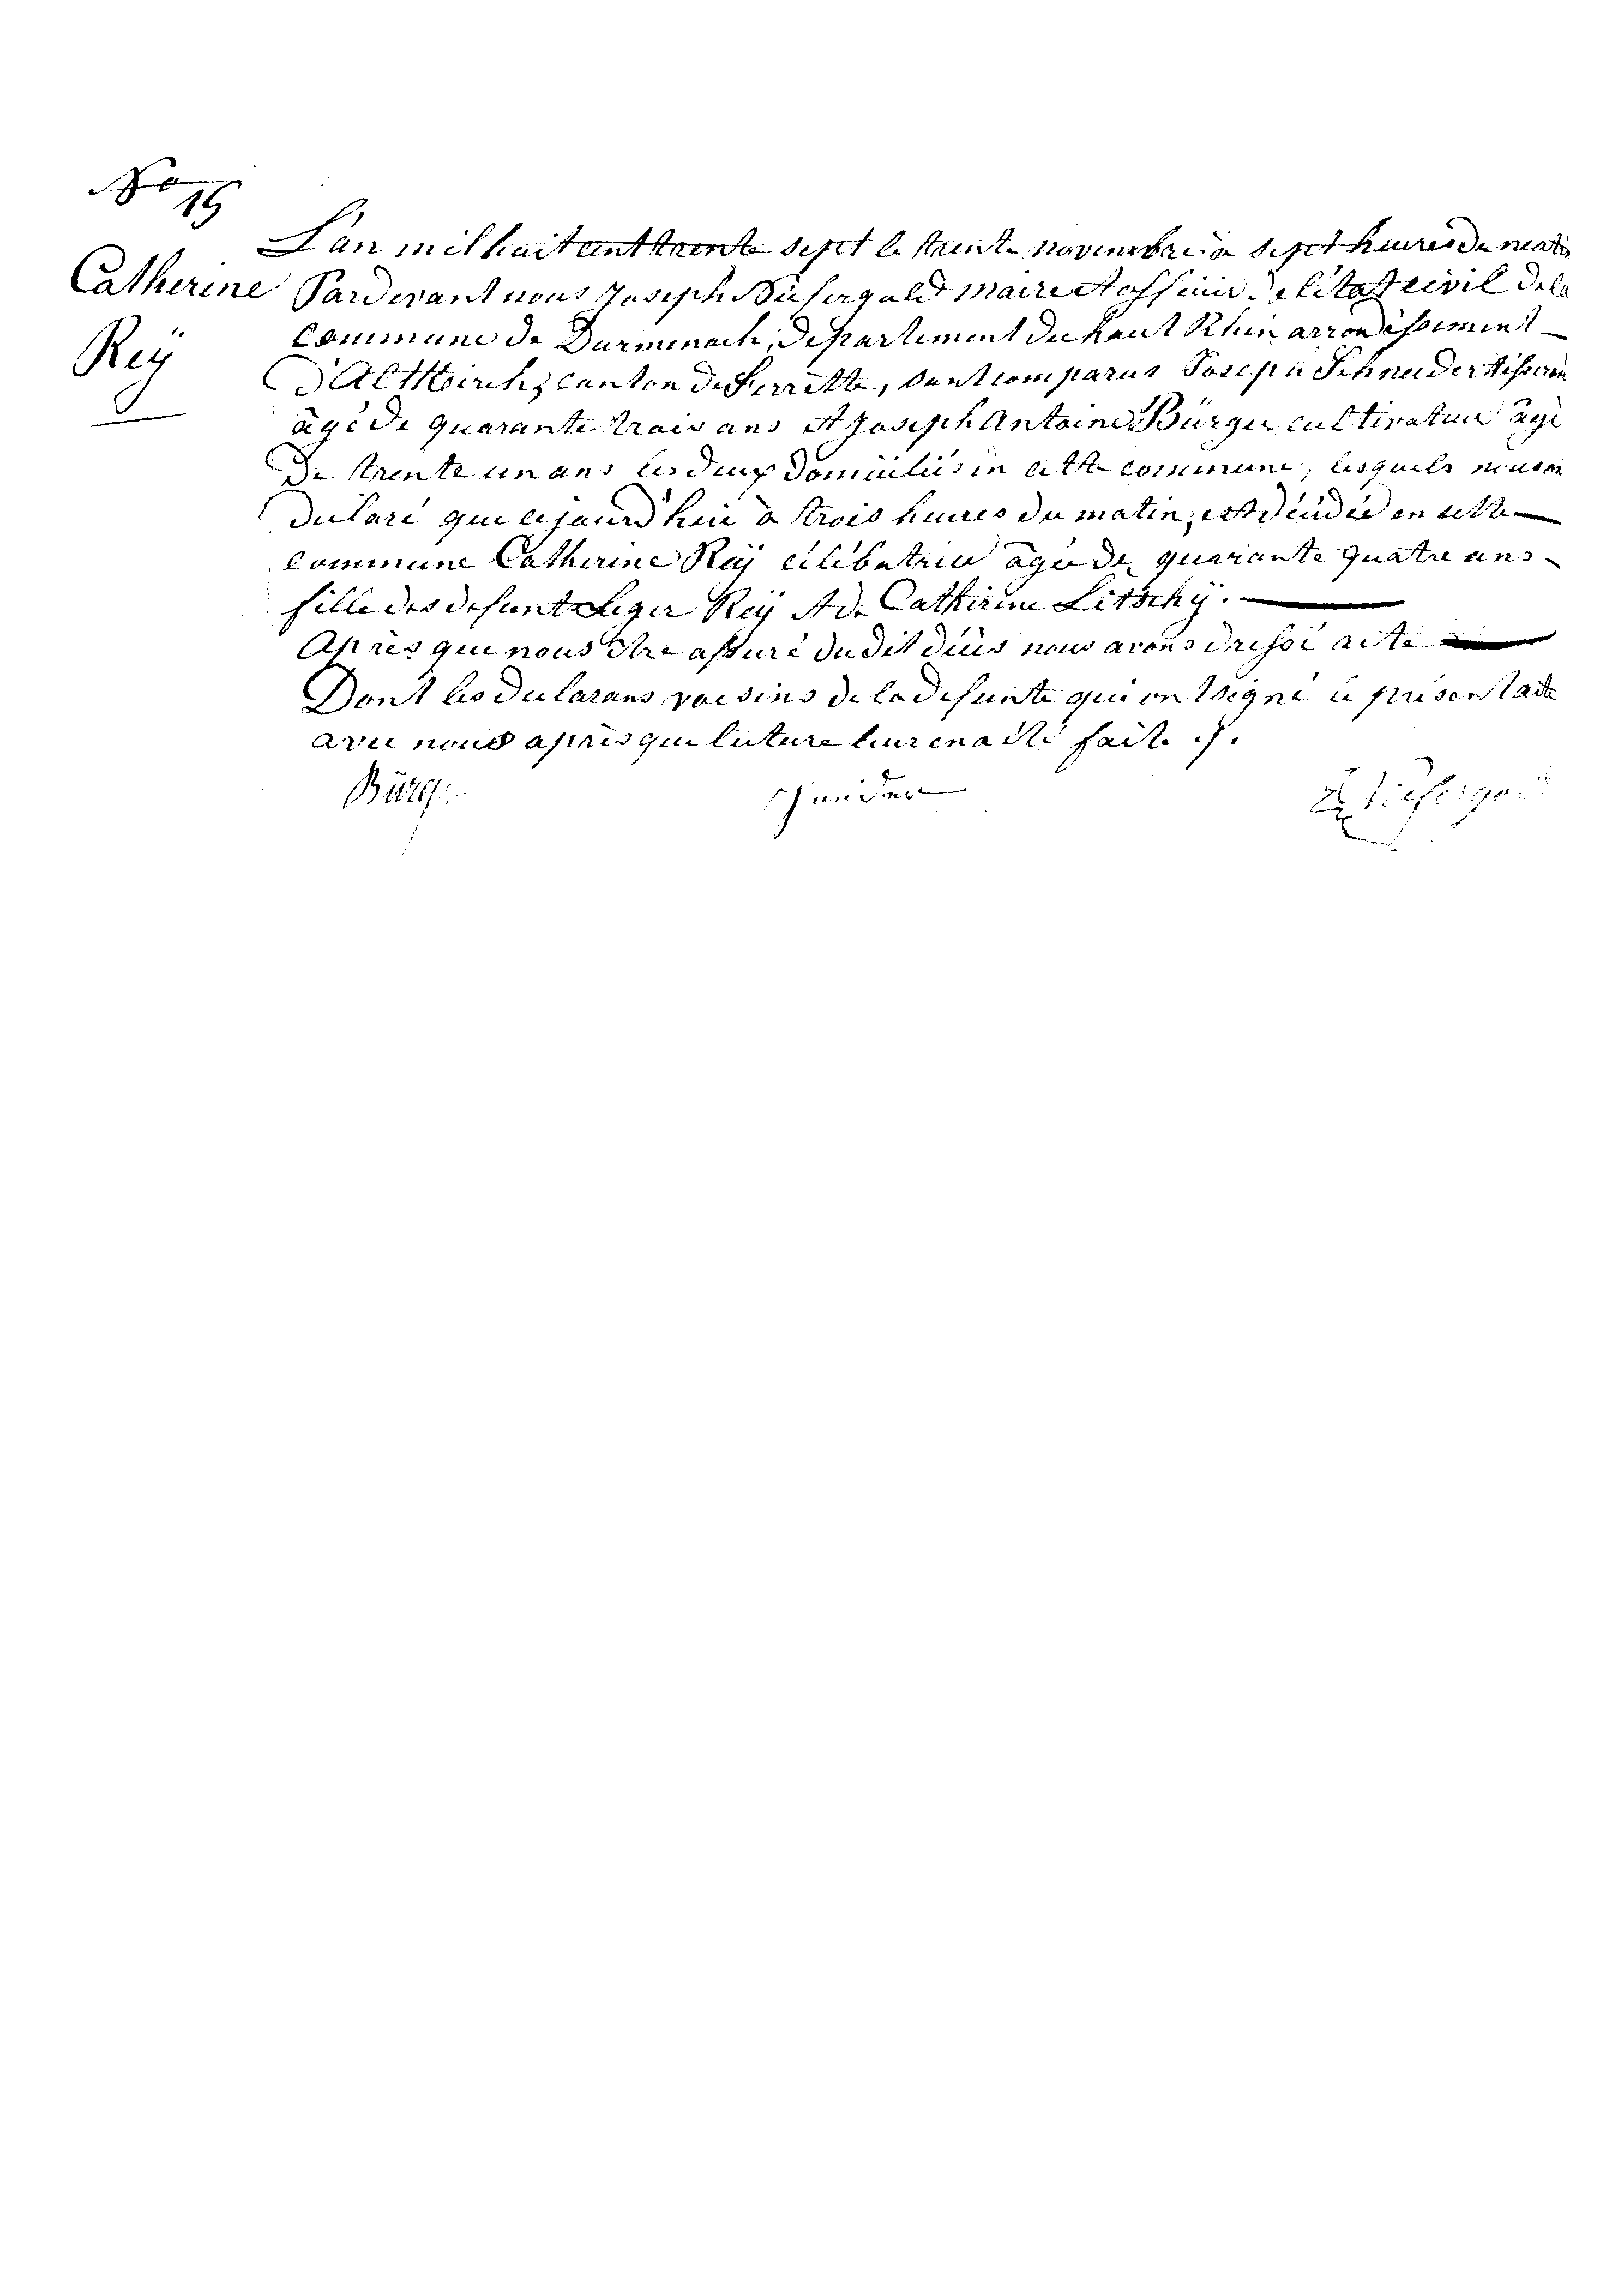 No 19
Catherine
Reÿ
L'an mil huit cent trente sept le trente novembre à sept heures du matin
Pardevant nous Joseph maire et officier de l'état civil de la
commune de Durmenach, département du haut Rhin arrondissement
d'Altkirch, canton de Ferrette, sont comparus Joseph Schneider tisseran
âgé de quarante trois ans et Joseph Antoine Bürger cultivateur âgé
De trente un ans les deux domiciliés en cette commune, lesquels nous on
declaré que cejourd'hui à trois heures du matin, est décédée en cette
commune Catherine Reÿ célibatrice âgée de quarante quatre ans
fille des defunts Leger Reÿ et de Catherine Litschÿ.
Après que nous être assuré du dit décès nous avons dressé acte
Dont les declarans voisins de la defunte qui ont signé le présent acte
avec nous après que lecture leur en a été faite ./.
Bürg
schneider